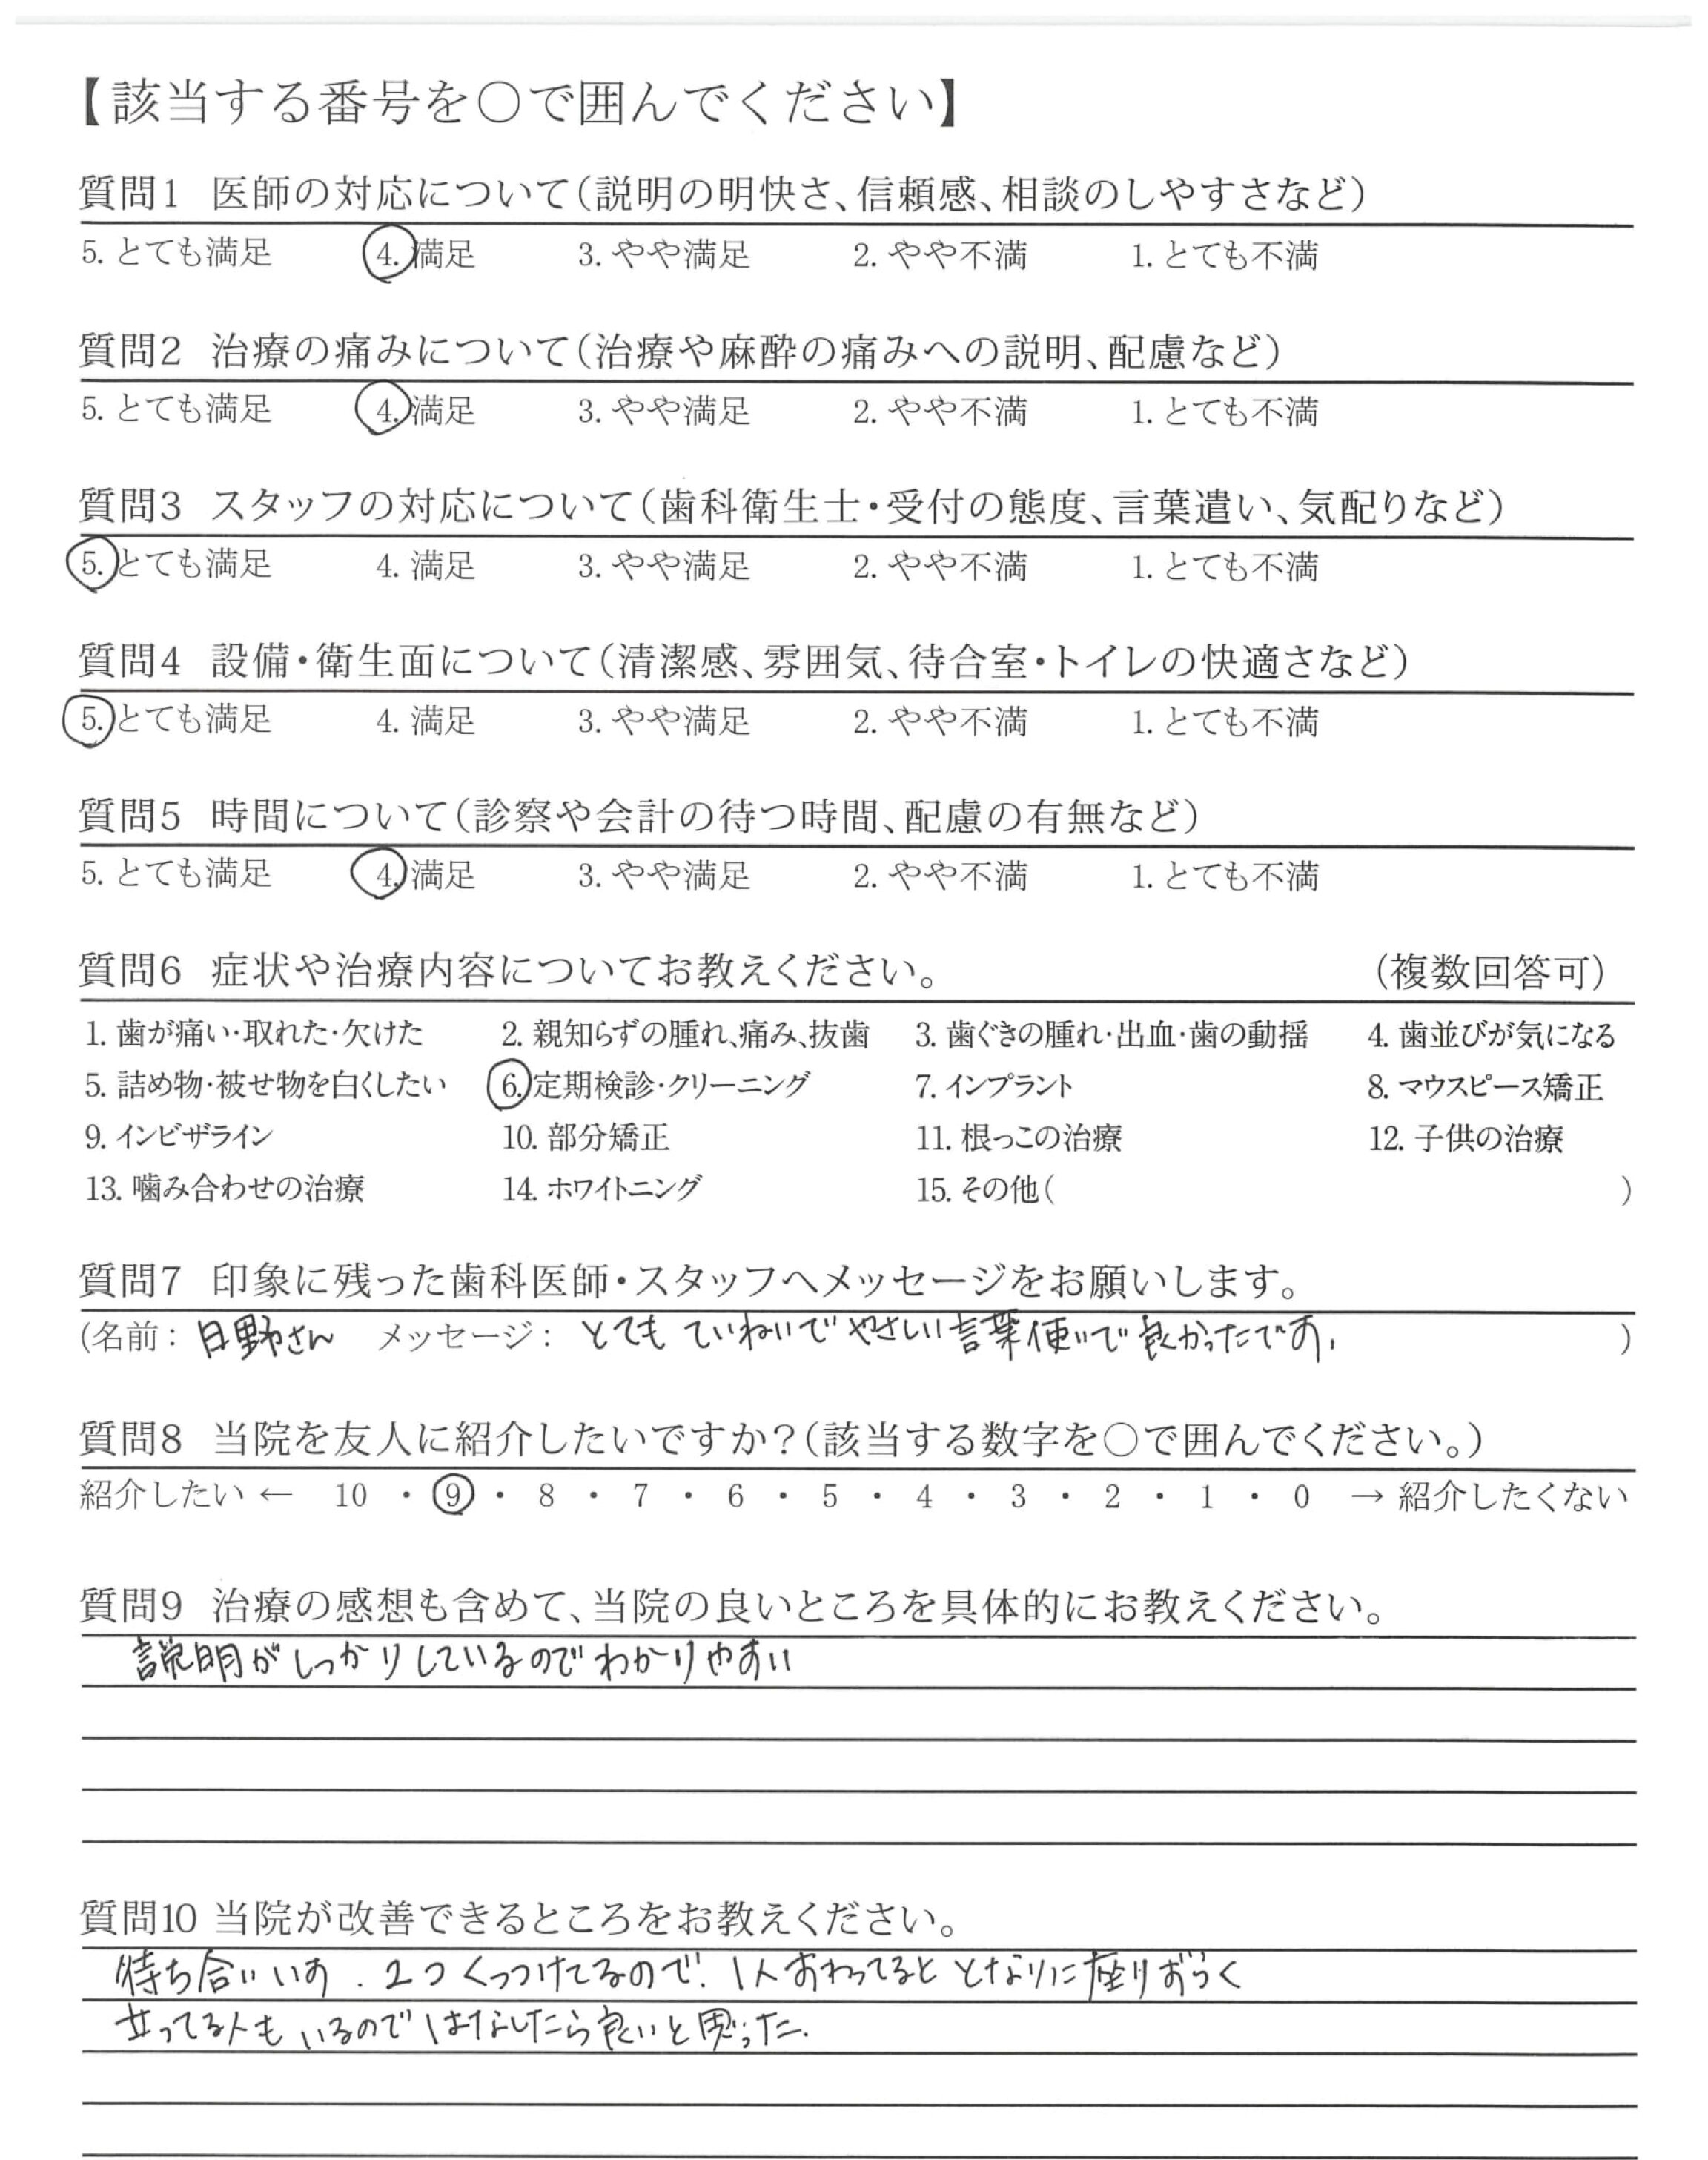 【該当する番号を○で囲んでください】
質問1 医師の対応について(説明の明快さ、信頼感、相談のしやすさなど)
5. とても満足 4. 満足 3. やや満足 2. やや不満 1. とても不満
質問2 治療の痛みについて(治療や麻酔の痛みへの説明、配慮など)
5. とても満足 4. 満足 3. やや満足 2. やや不満 1. とても不満
質問3 スタッフの対応について(歯科衛生士・受付の態度、言葉遣い、気配りなど)
5. とても満足 4. 満足 3. やや満足 2. やや不満 1. とても不満
質問4 設備・衛生面について(清潔感、雰囲気、待合室・トイレの快適さなど)
5. とても満足 4. 満足 3. やや満足 2. やや不満 1. とても不満
質問5 時間について(診察や会計の待つ時間、配慮の有無など)
5. とても満足 4. 満足 3. やや満足 2. やや不満 1. とても不満
質問6 症状や治療内容についてお教えください。 (複数回答可)
1. 歯が痛い・取れた・欠けた 2. 親知らずの腫れ、痛み、抜歯 3. 歯ぐきの腫れ・出血・歯の動揺 4. 歯並びが気になる
5. 詰め物・被せ物を白くしたい 6. 定期検診・クリーニング 7. インプラント 8. マウスピース矯正
9. インビザライン 10. 部分矯正 11. 根っこの治療 12. 子供の治療
13. 噛み合わせの治療 14. ホワイトニング 15. その他( )
質問7 印象に残った歯科医師・スタッフへメッセージをお願いします。
(名前: 日野さん メッセージ: とても ていねいで やさしい言葉使いで 良かったです。 )
質問8 当院を友人に紹介したいですか?(該当する数字を○で囲んでください。)
紹介したい ← 10 ・ 9 ・ 8 ・ 7 ・ 6 ・ 5 ・ 4 ・ 3 ・ 2 ・ 1 ・ 0 → 紹介したくない
質問9 治療の感想も含めて、当院の良いところを具体的にお教えください。
説明がしっかりしているのでわかりやすい
質問10 当院が改善できるところをお教えください。
待ち合いいす、2つくっつけてるので、1人すわってると となりに座りずらく
立ってる人も いるので はなしたら良いと思った。